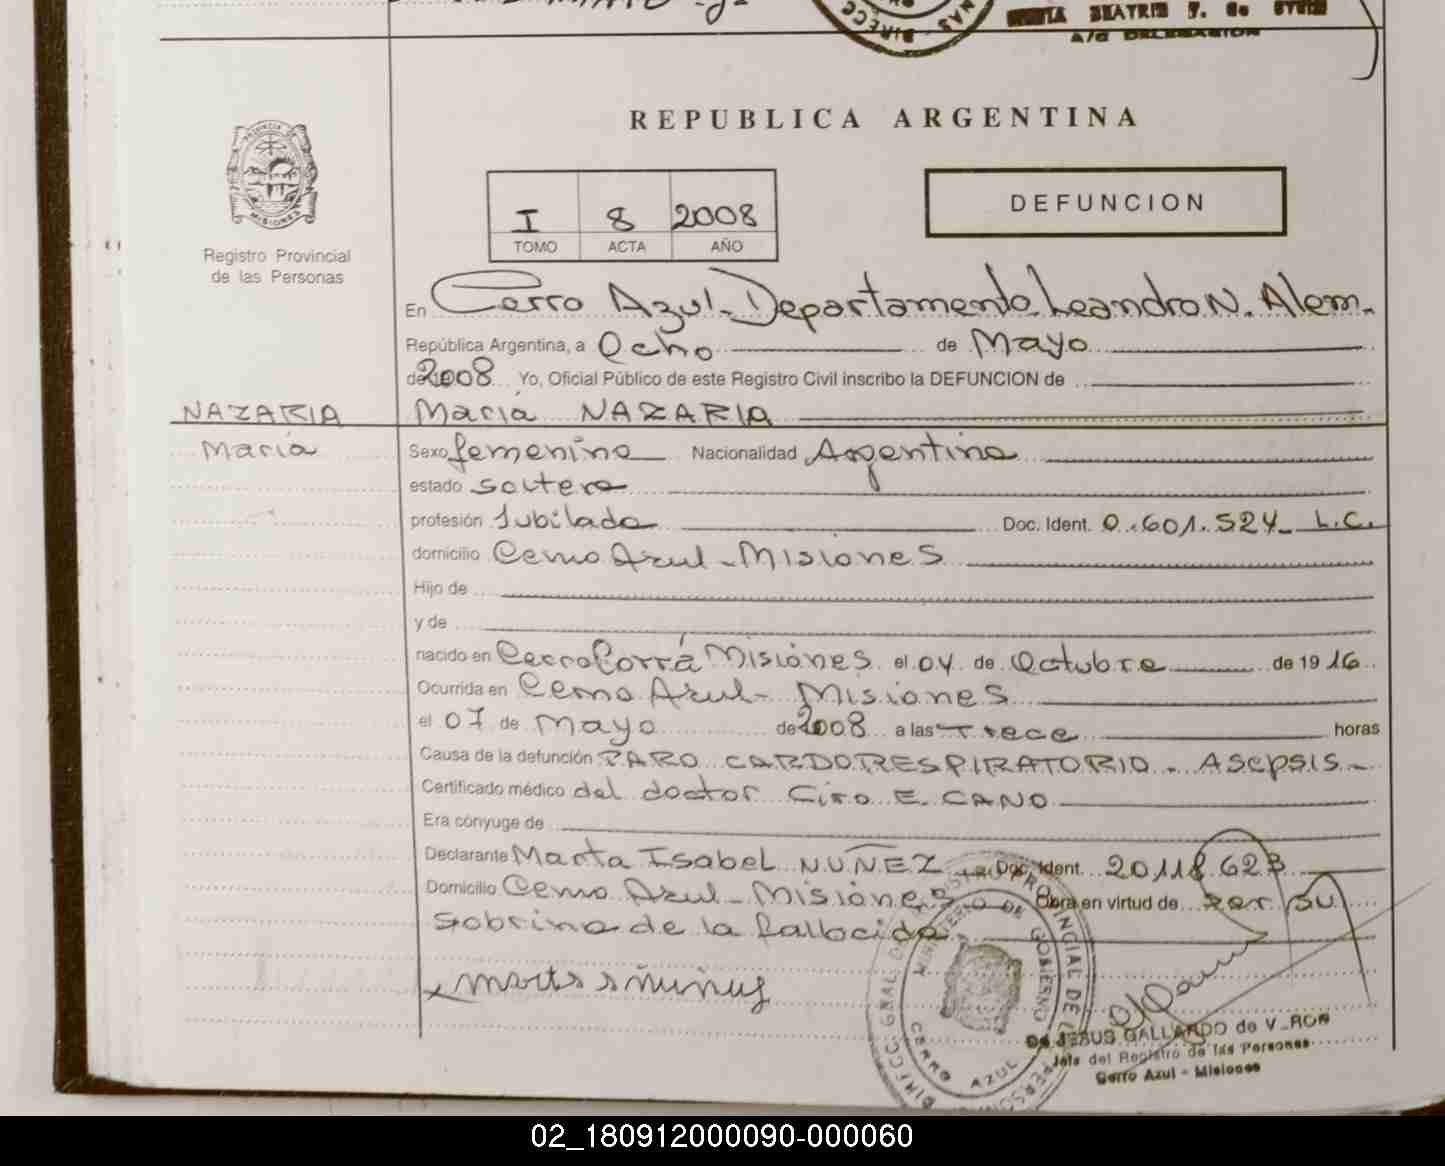 A/C DELEGACION
REPUBLICA ARGENTINA
I 8 2008
TOMO ACTA AÑO
DEFUNCION
PROVINCIA DE
MISIONES
Registro Provincial
de las Personas
En Cerro Azul - Departamento Leandro N. Alem.-
República Argentina, a Ocho de Mayo
de 2008 Yo, Oficial Público de este Registro Civil inscribo la DEFUNCION de
NAZARIA María NAZARIA
María Sexo femenino Nacionalidad Argentina
estado soltera
profesión Jubilada Doc. Ident. 0.601.524 - L.C.
domicilio Cerro Azul - Misiones
Hijo de
y de
nacido en Cerro Corrá Misiones el 04 de Octubre de 19 16
Ocurrida en Cerro Azul - Misiones
el 07 de Mayo de 2008 a las Trece horas
Causa de la defunción PARO CARDORRESPIRATORIO - ASEPSIS -
Certificado médico del doctor Ciro E. CANO
Era cónyuge de
Declarante Marta Isabel NUÑEZ Doc. Ident. 20.118.623
Domicilio Cerro Azul - Misiones Obra en virtud de ser su
sobrina de la fallecida
MINISTERIO DE GOBIERNO
CERRO AZUL
JESUS GALLARDO de
Jefa del Registro de las Personas
Cerro Azul - Misiones
02_180912000090-000060